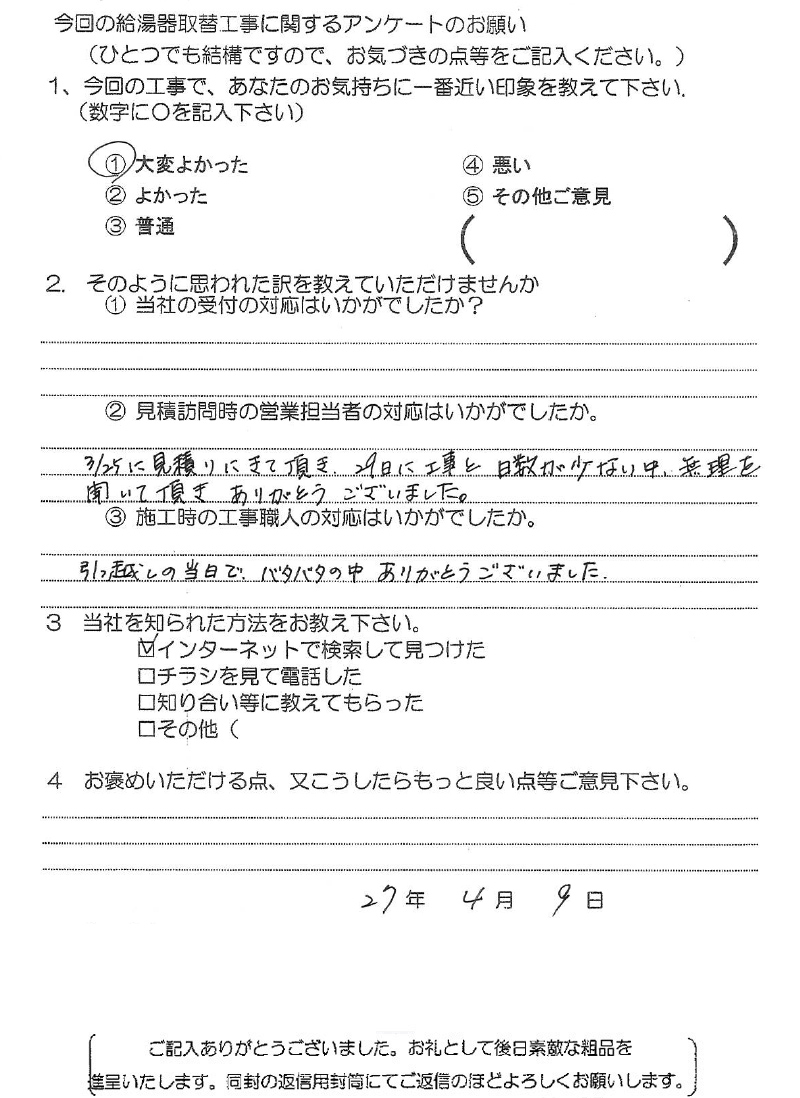 今回の給湯器取替工事に関するアンケートのお願い
（ひとつでも結構ですので、お気づきの点等をご記入ください。）
1、今回の工事で、あなたのお気持ちに一番近い印象を教えて下さい.
（数字に〇を記入下さい）
① 大変よかった ④ 悪い
② よかった ⑤ その他ご意見
③ 普通 （ ）
2. そのように思われた訳を教えていただけませんか
① 当社の受付の対応はいかがでしたか？
② 見積訪問時の営業担当者の対応はいかがでしたか。
3/25に見積りにきて頂き 29日に工事と 日数が少ない中、無理を
聞いて頂き ありがとうございました。
③ 施工時の工事職人の対応はいかがでしたか。
引っ越しの当日で、バタバタの中 ありがとうございました.
3 当社を知られた方法をお教え下さい。
☑インターネットで検索して見つけた
□チラシを見て電話した
□知り合い等に教えてもらった
□その他（
4 お褒めいただける点、又こうしたらもっと良い点等ご意見下さい。
27年 4月 9日
ご記入ありがとうございました。お礼として後日素敵な粗品を
進呈いたします。同封の返信用封筒にてご返信のほどよろしくお願いします。